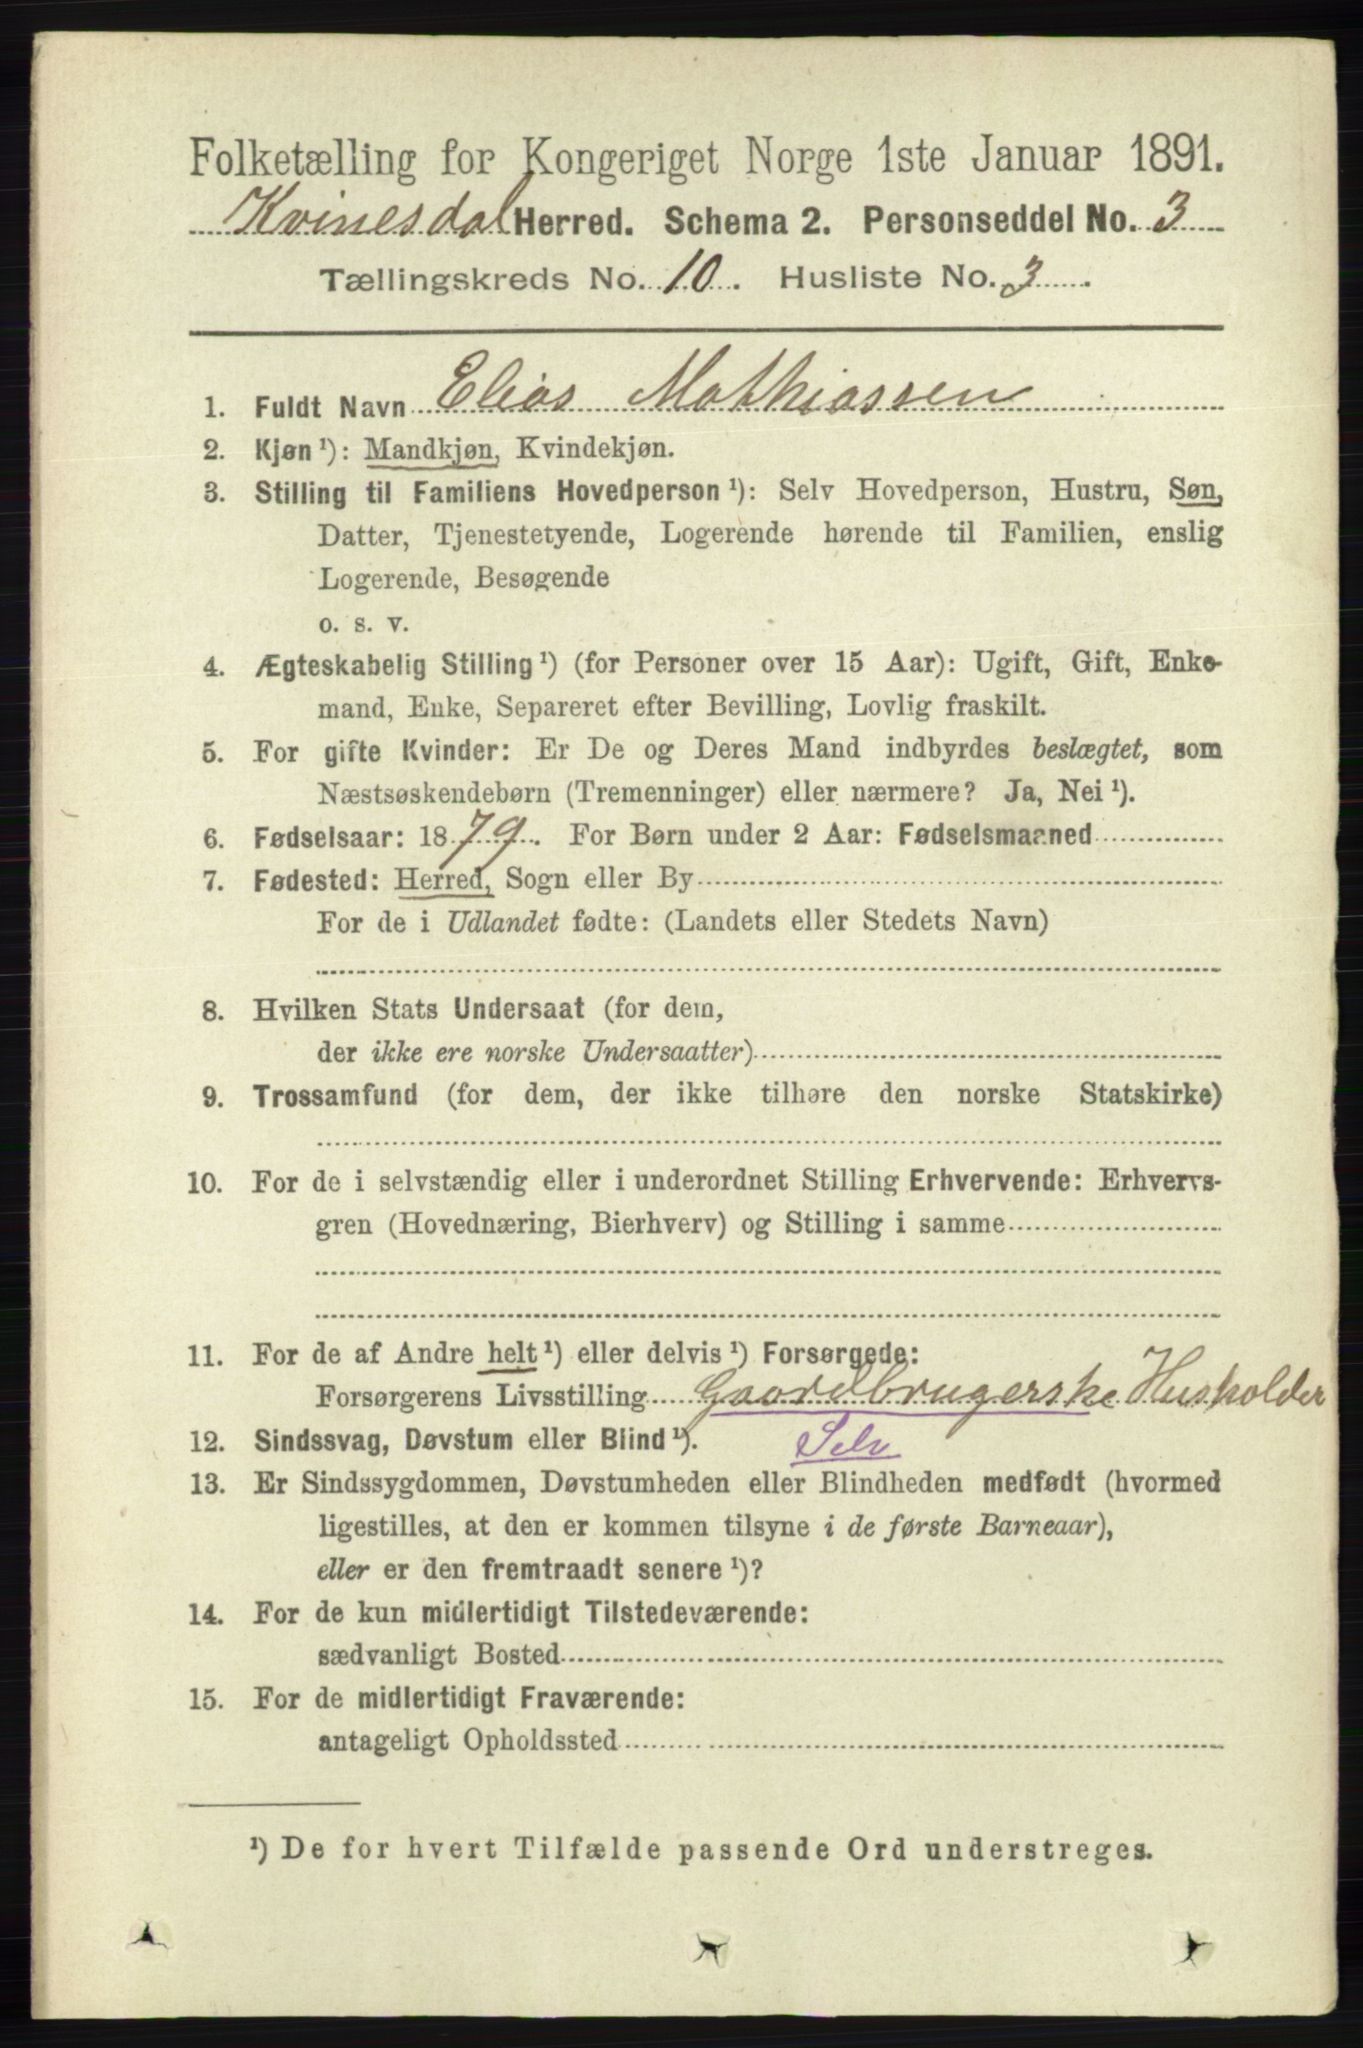 Folketælling for Kongeriget Norge 1ste Januar 1891.
Kvinesdal Herred. Schema 2. Personseddel No. 3
Tællingskreds No. 10. Husliste No. 3.
1. Fuldt Navn Elias Mathiassen
2. Kjøn ¹): Mandkjøn, Kvindekjøn.
3. Stilling til Familiens Hovedperson ¹): Selv Hovedperson, Hustru, Søn,
Datter, Tjenestetyende, Logerende hørende til Familien, enslig
Logerende, Besøgende
o. s. v.
4. Ægteskabelig Stilling ¹) (for Personer over 15 Aar): Ugift, Gift, Enke-
mand, Enke, Separeret efter Bevilling, Lovlig fraskilt.
5. For gifte Kvinder: Er De og Deres Mand indbyrdes beslægtet, som
Næstsøskendebørn (Tremenninger) eller nærmere? Ja, Nei ¹).
6. Fødselsaar: 1879. For Børn under 2 Aar: Fødselsmaaned
7. Fødested: Herred, Sogn eller By
For de i Udlandet fødte: (Landets eller Stedets Navn)
8. Hvilken Stats Undersaat (for dem,
der ikke ere norske Undersaatter)
9. Trossamfund (for dem, der ikke tilhøre den norske Statskirke)
10. For de i selvstændig eller i underordnet Stilling Erhvervende: Erhvervs-
gren (Hovednæring, Bierhverv) og Stilling i samme
11. For de af Andre helt ¹) eller delvis ¹) Forsørgede:
Forsørgerens Livsstilling Gaardbrugerske Husholder
12. Sindssvag, Døvstum eller Blind ¹). Selv
13. Er Sindssygdommen, Døvstumheden eller Blindheden medfødt (hvormed
ligestilles, at den er kommen tilsyne i de første Barneaar),
eller er den fremtraadt senere ¹)?
14. For de kun midlertidigt Tilstedeværende:
sædvanligt Bosted
15. For de midlertidigt Fraværende:
antageligt Opholdssted
¹) De for hvert Tilfælde passende Ord understreges.